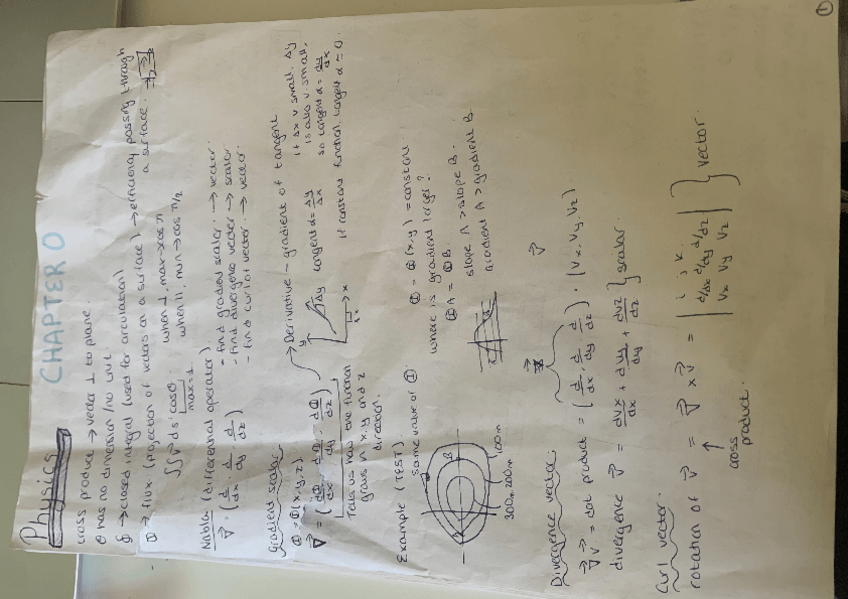 Physics CHAPTER 0
cross product → vector ⊥ to plane.
θ has no dimension / no unit
∮ → closed integral (used for circulation)
Φ → flux (projection of vectors on a surface) → efficiency passing through a surface.
∬ v⃗ ds · cosθ when ⊥, max → cos π
max=1 when ||, min → cos π/2
Nabla (differential operator)
∇⃗ · (d/dx . d/dy . d/dz)
- find gradient scalar → vector
- find divergence vector → scalar
- find curl of vector → vector.
Gradient scalar
Φ = Φ(x,y,z)
∇⃗ = (dΦ/dx . dΦ/dy . dΦ/dz)
Tells us how the function
grows in x, y and z
direction.
→ Derivative - gradient of tangent
y Δy x
tangent α = Δy/Δx
if Δx v small, Δy
is also v small,
so tangent α = dy/dx
if constant function, tangent α = 0.
Example (TEST)
same value of Φ
A B
300m 200m 100m
Φ = Φ(x,y) = constant
where is gradient larger?
ΦA = ΦB.
slope A > slope B.
gradient A > gradient B
Divergence vector.
∇⃗ v⃗ = dot product = (d/dx . d/dy . d/dz) · (Vx, Vy, Vz)
v⃗
divergence v⃗ = dVx/dx + dVy/dy + dVz/dz } scalar.
Curl vector.
rotation of v⃗ = ∇⃗ x v⃗ = | i j k |
| d/dx d/dy d/dz |
| Vx Vy Vz | } vector.
↑
cross
product.
1